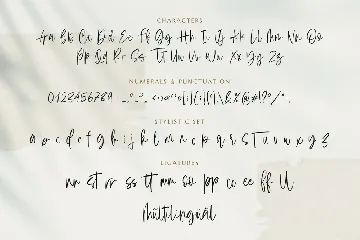 CHARACTERS
Aa Bb Cc Dd Ee Ff Gg Hh Ii Jj Kk Ll Mm Nn Oo
Pp Qq Rr Ss Tt Uu Vv Ww Xx Yy Zz
NUMERALS & PUNCTUATION
0123456789
STYLISTIC SET
a b c d e f g h i j k l m n o p q r s t u v w x y z
LIGATURES
nn st rr ss tt mm oo pp cc ee ff ll
multilingual